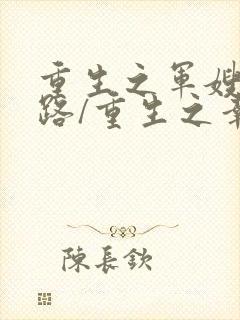 重生之军嫂
路/重生之幸
陳長欽